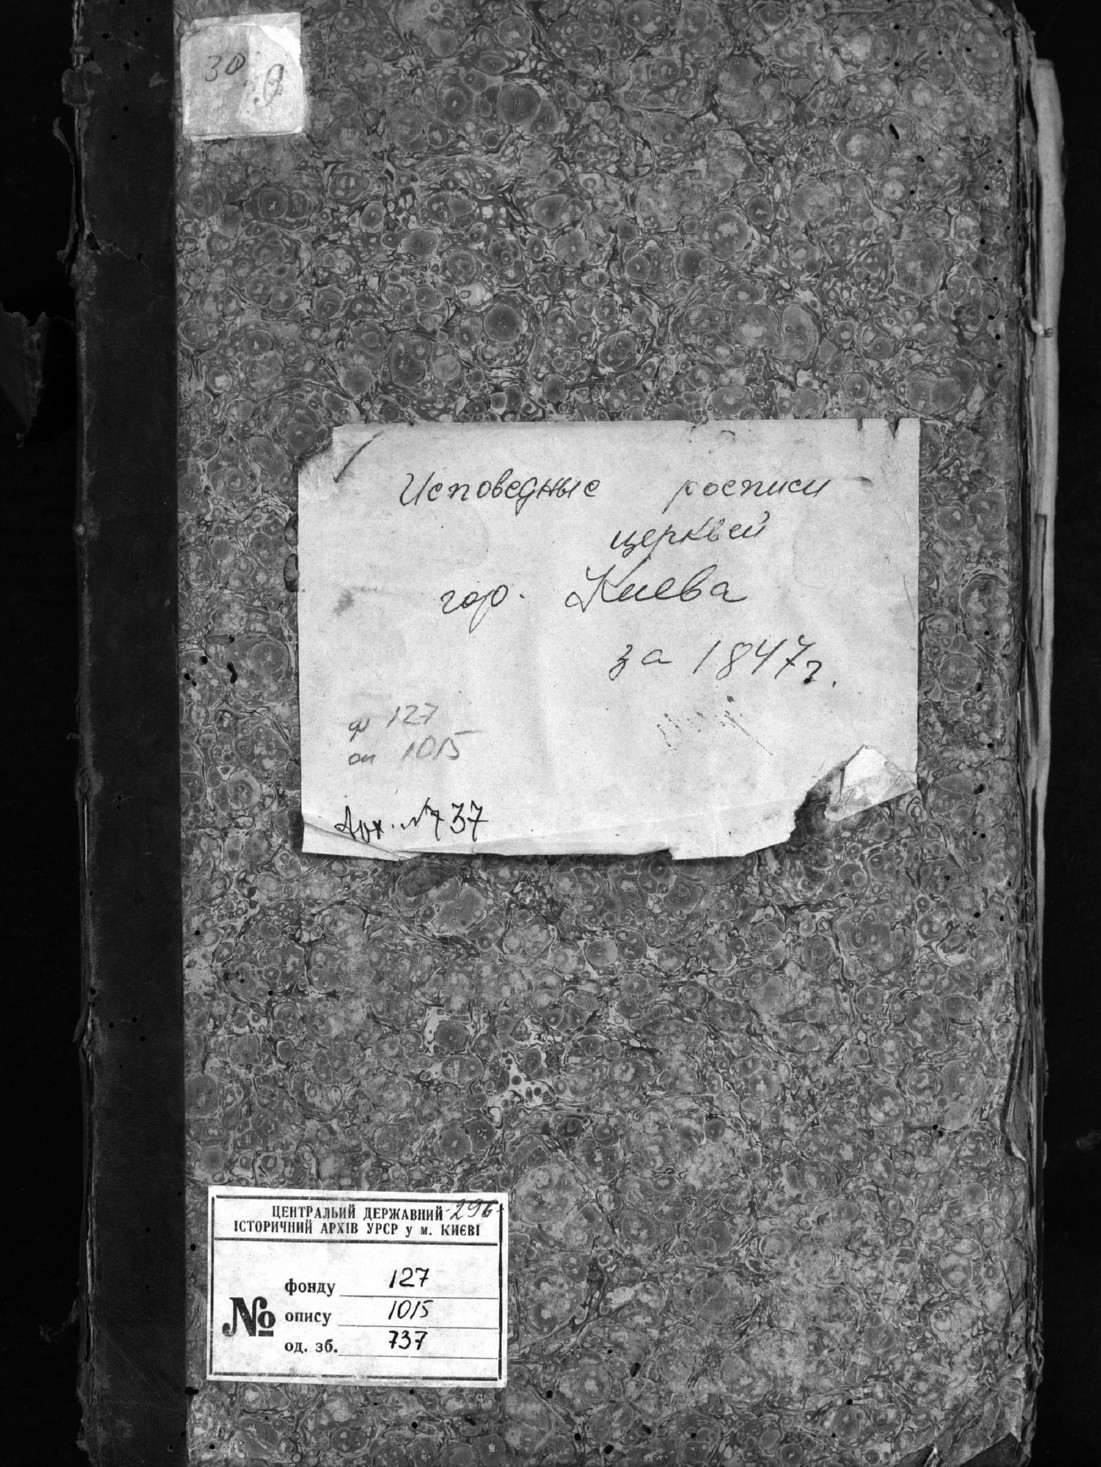 30
Исповедные росписи
церквей
гор. Киева
за 1847г.
ф 127
оп 1015
Арх. № 737
296
ЦЕНТРАЛЬНИЙ ДЕРЖАВНИЙ
ІСТОРИЧНИЙ АРХІВ УРСР у м. КИЄВІ
№
фонду 127
опису 1015
од. зб. 737